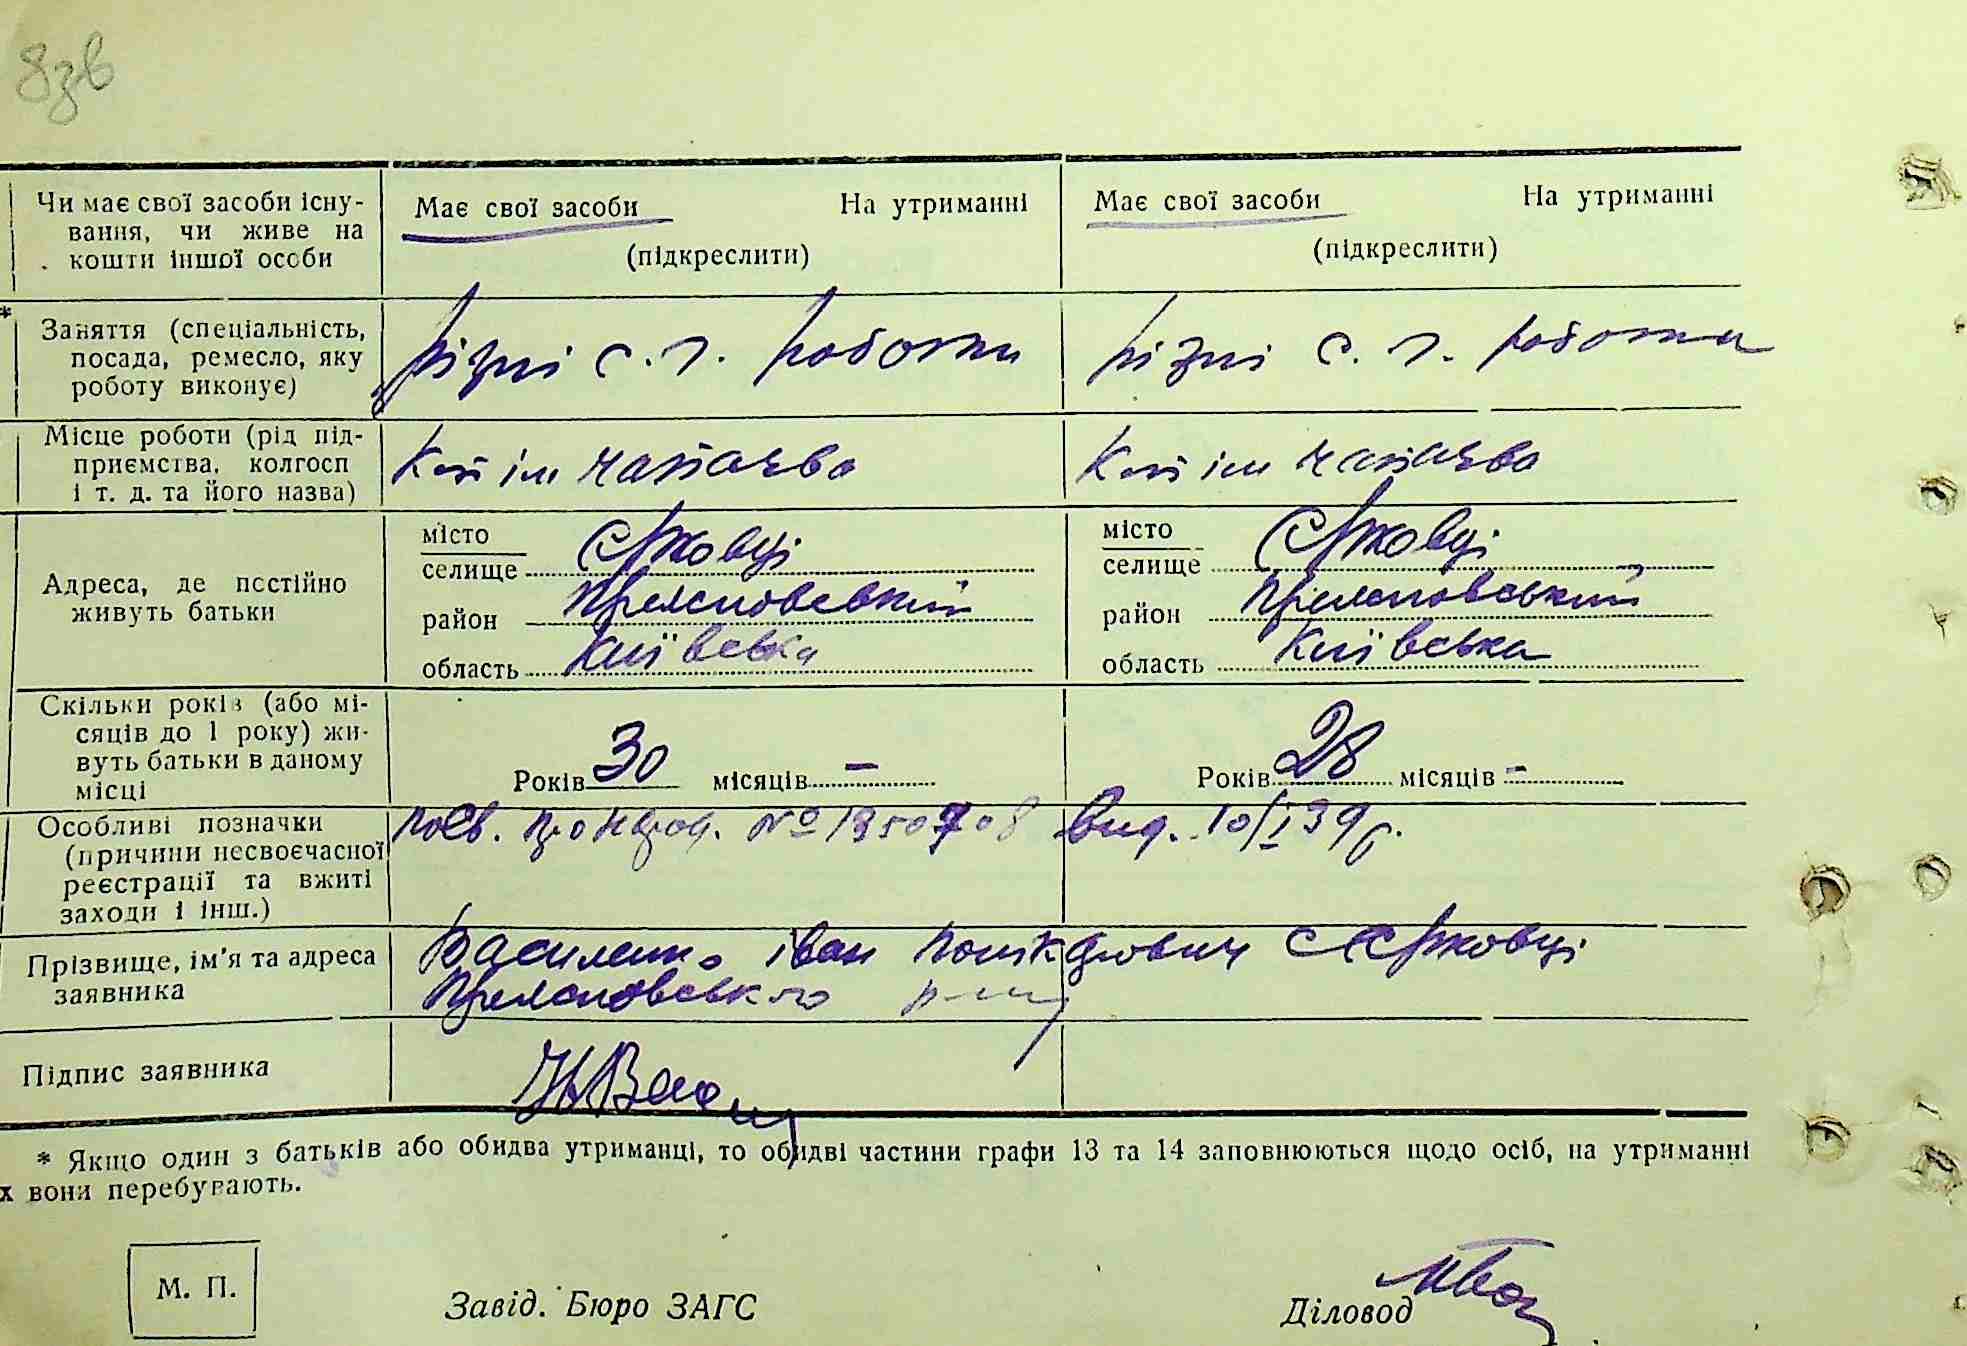 8зв
Чи має свої засоби існу-
вання, чи живе на
кошти іншої особи
Має свої засоби На утриманні
(підкреслити)
Має свої засоби На утриманні
(підкреслити)
* Заняття (спеціальність,
посада, ремесло, яку
роботу виконує)
різні с. г. роботи
різні с. г. роботи
Місце роботи (рід під-
приємства, колгосп
і т. д. та його назва)
ім Чапаєва
ім Чапаєва
Адреса, де постійно
живуть батьки
місто
селище Єрковці
район
область Київська
місто
селище Єрковці
район
область Київська
Скільки років (або мі-
сяців до 1 року) жи-
вуть батьки в даному
місці
Років 30 місяців –
Років 28 місяців -
Особливі позначки
(причини несвоєчасної
реєстрації та вжиті
заходи і інш.)
посв. про народ. № вид. 10/I 39 р.
Прізвище, ім'я та адреса
заявника
Василенко Іван с Єрковці
р-ну
Підпис заявника
* Якщо один з батьків або обидва утриманці, то обидві частини графи 13 та 14 заповнюються щодо осіб, на утриманні
х вони перебувають.
М. П.
Завід. Бюро ЗАГС
Діловод